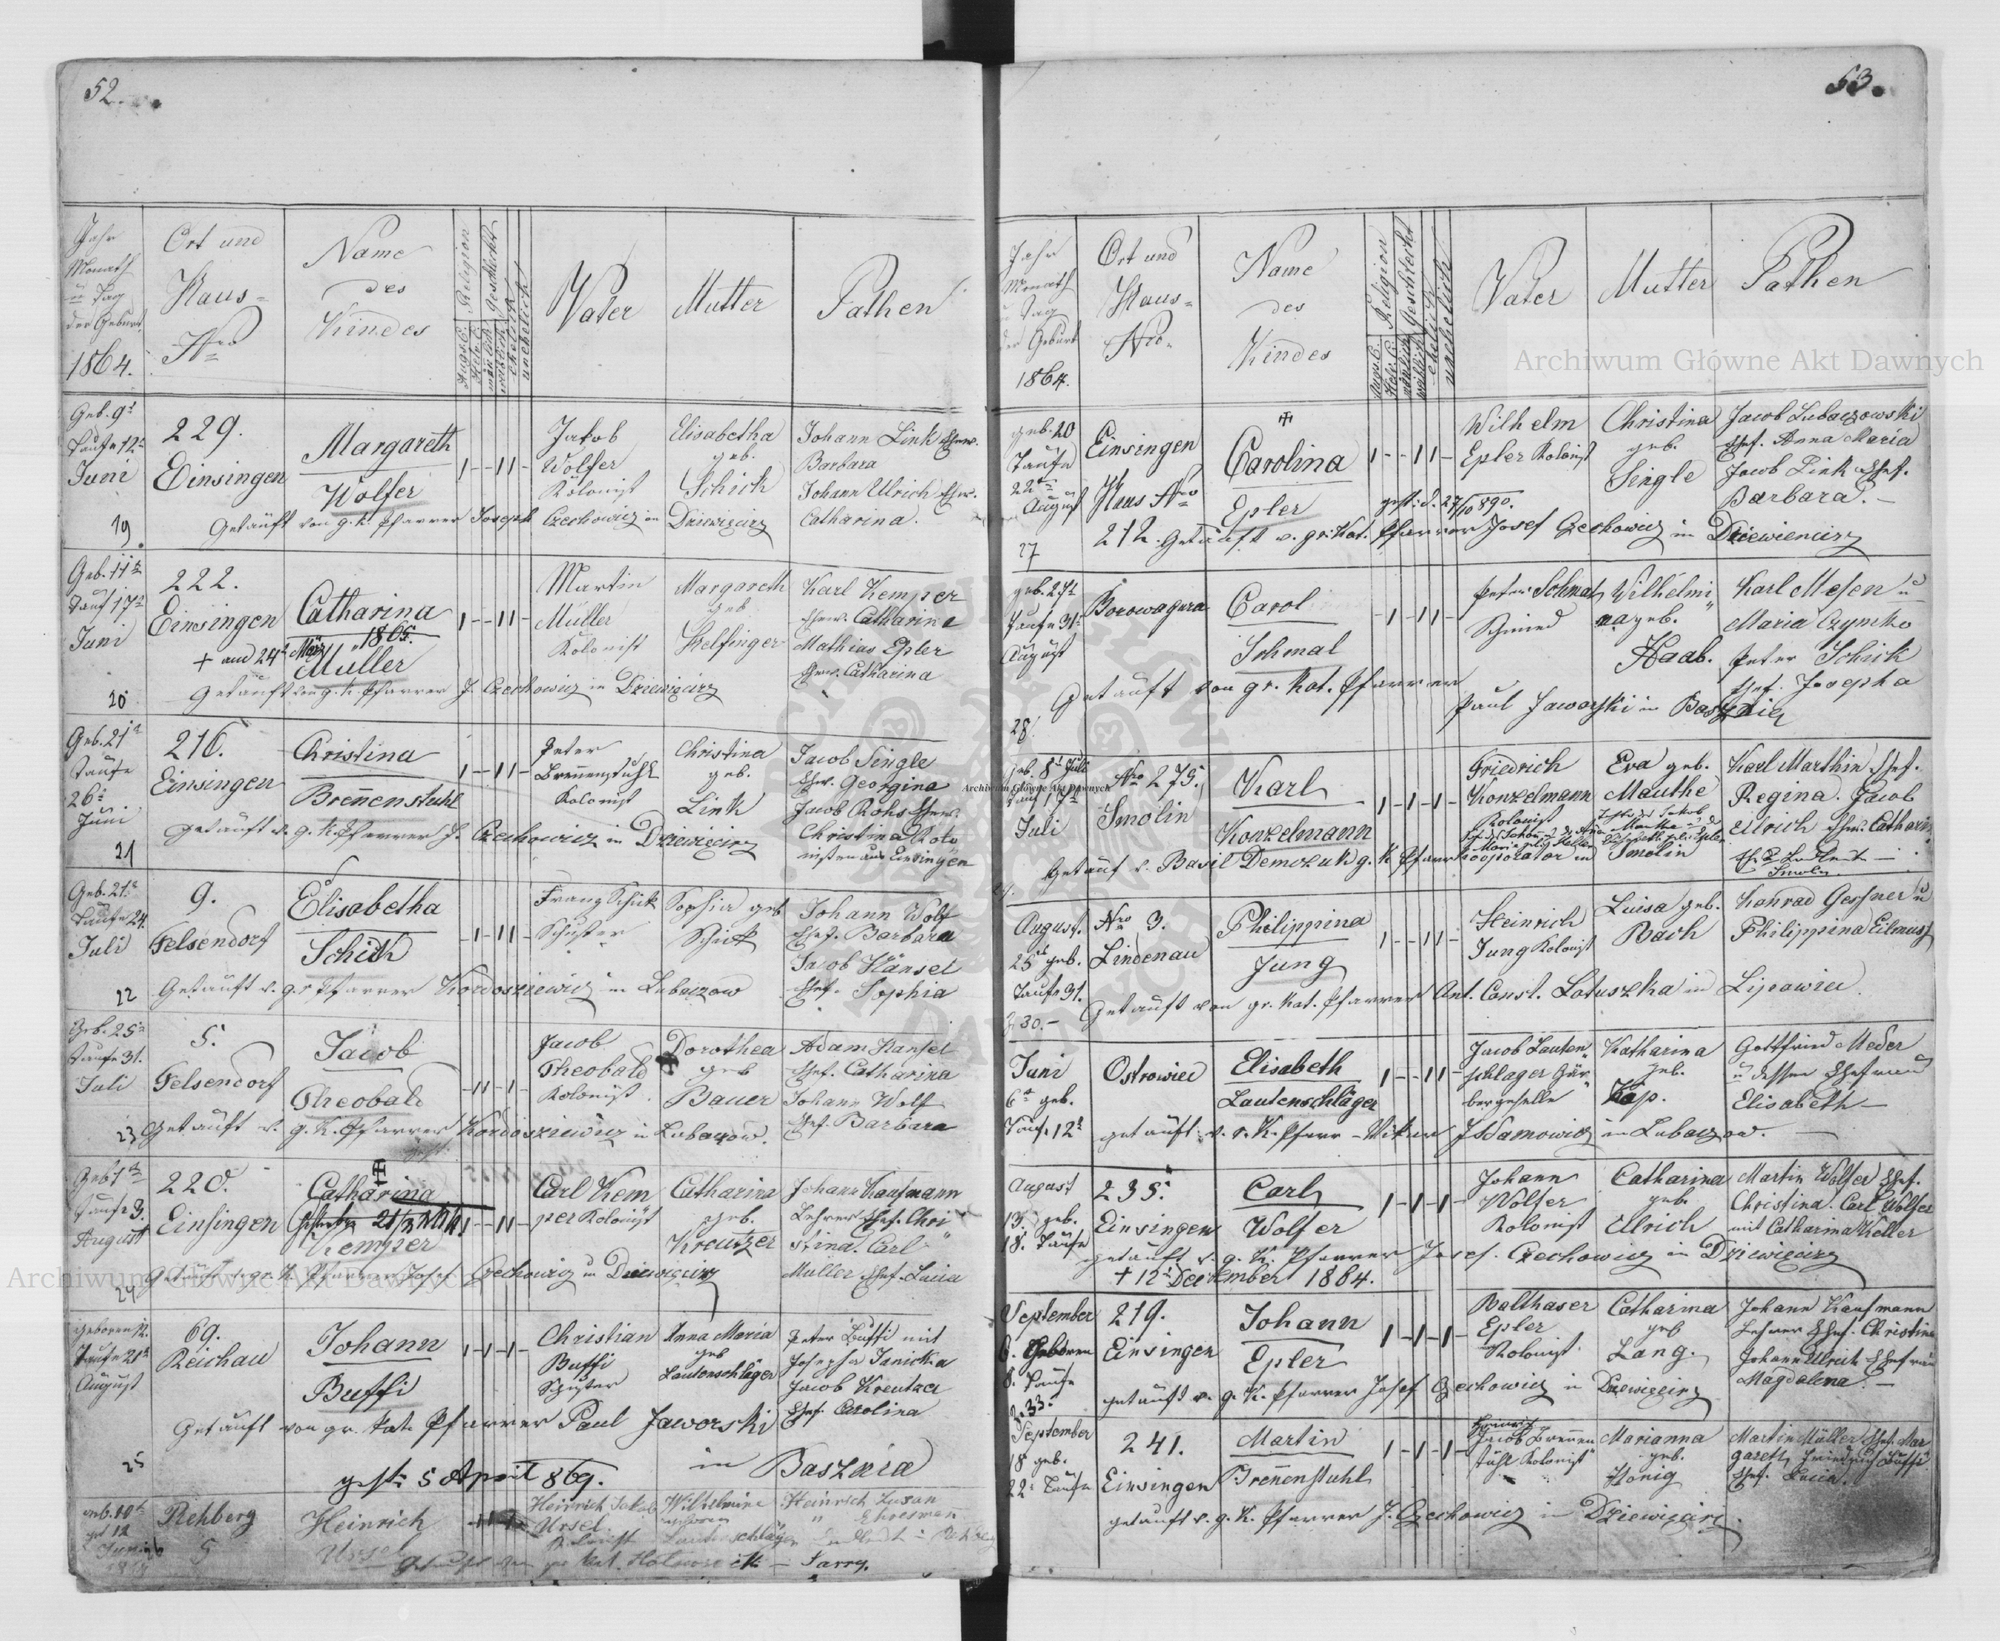 52.
Jahr
Monath
u Tag
der Geburt
1864.
Ort und
Haus=
Nro
Name
des
Kindes
Religion
Geschlecht
Augs. C.
Helv. C.
männlich
weiblich
ehelich
unehelich
Vater
Mutter
Pathen
Geb. 9t
Taufe 12t
Juni
19.
229.
Einsingen
Margareth
Wolfer
Jakob
Wolfer
Kolonist
Elisabetha
geb.
Schick
Johann Link Ehew.
Barbara
Johann Ulrich Ehew.
Catharina.
Getauft von g. k. Pfarrer Joseph Czechowicz in Dziewięcirz
Geb. 11t
Tauf 17t
Juni
20
222.
Einsingen
Catharina
+ am 24t März 1865.
Müller
Martin
Müller
Kolonist
Margareth
geb
Helfinger
Karl Kemper
Ehew. Catharina
Mathias Epler
Ehew. Catharina
Getauft von g. k. Pfarrer J. Czechowicz in Dziewięcirz
Geb. 21t
Taufe
26t
Juni
21
216.
Einsingen
Christina
Brennenstuhl
Peter
Brennenstuhl
Kolonist
Christina
geb.
Link
Jacob Single
Ehw. Georgina
Jacob Rohs Ehew.
Christina Kolo
nisten aus Einsingen
Getauft v. g. K. Pfarrer J. Czechowicz in Dziewięcirz
Geb. 21t
Taufe 24.
Juli
22
9.
Felsendorf
Elisabetha
Schick
Franz Schick
Schuster
Sophia geb
Schick
Johann Wolf
Ehef. Barbara
Jacob Hänsel
Ehef. Sophia
Getauft v. g. k Pfarrer Kordasziewicz in Lubaczow
Geb. 25t
Taufe 31.
Juli
23
5.
Felsendorf
Jacob
Theobald
Jacob
Theobald
Kolonist.
Dorothea
geb
Bauer
Adam Hansel
Ehef. Catharina
Johann Wolf
Ehef. Barbara
Getauft v. g. K. Pfarrer Kordasziewicz in Lubaczow.
Geb 1t
Taufe 3.
August
24
220.
Einsingen
Catharina
Kemper
Carl Kem
per Kolonist
Catharina
geb.
Kreutzer
Johann Kaufmann
Lehrer Ehef. Chri
stina. Carl
Muller Ehef. Lucia
Getauft v. g. K. Pfarrer Josef Czechowicz in Dziewięcirz
Taufe 21t
August
25
69.
Reichau
Johann
Buffi
Christian
Buffi
Schuster
Anna Maria
geb
Lautenschläger
Peter Buffi mit
Josepha Janicka
Jacob Kreutzer
Ehef. Carolina
Getauft von gr. kat. Pfarrer Paul Jaworski
in Basznia
gest. 5 April 869.
geb. 10t
Rehberg
5
Heinrich
Ursel
Heinrich Jakob
Ursel
Wilhelmine
Lautenschläger
Heinrich
53.
Jahr
Monath
u Tag
der Geburt
1864.
Ort und
Haus=
Nro.
Name
des
Kindes
Religion
Geschlecht
Augs. C.
Helv. C.
männlich
weiblich
ehelich
unehelich
Vater
Mutter
Pathen
geb. 20
Taufe
22t
August
27
Einsingen
Haus Nro
212.
Carolina
Epler
Wilhelm
Epler Kolonist
gest. d. 27/10 890.
Christina
geb.
Single
Jacob Lubaczowski
Ehef. Anna Maria
Jacob Link Ehef.
Barbara. —
Getauft v. gr. Kat. Pfarrer Josef Czechowicz in Dziewiencirz
geb. 27t
Taufe 31t
August
28.
Borowagura
Carol
Schmal
Peter Schmal
Schmied
Wilhelmi
na geb.
Haab.
Karl Mesen u
Maria Czymko
Peter Schick
Ehef. Josepha
Getauft von gr. Kat. Pfarrer
Paul Jaworski in Basznia
geb. 8t Juli
Tauf 17t
Juli
Nro 275.
Smolin
Karl
Konzelmann
Friedrich
Konzelmann
Kolonist
Eva geb.
Mauthe
Karl Marthin Ehef.
Regina. Jacob
Ulrich Ehew. Catharin
Smolin
Getauf v. Basil Demczuk g. K Pfarr Kooperator in Smolin
August.
25t geb.
Taufe 31.
30.—
Nro 3.
Lindenau
Philippina
Jung
Heinrich
Jung Kolonist
Luisa geb.
Bach
Konrad Gessner u
Philippina Eilmus
Getauft von gr. kat. Pfarrer Ant. Const. Lotuszka in Lipowiec
Juni
6t geb.
Tauf. 12t
Ostrowiec
Elisabeth
Lautenschläger
Jacob Lauten
schlager Gär
bergeselle
Katharina
geb.
Kap.
Gottfried Meder
u dessen Ehefrau
Elisabeth—
getauft v. r. K. Pfarr-Vikar J. Adamowicz in Lubaczow.
August
13. geb.
18. Taufe
235.
Einsingen
Carl
Wolfer
Johann
Wolfer
Kolonist
Catharina
geb
Ulrich
Martin Wolfer Ehef.
Christina. Carl Wolfer
mit Catharina Keller
getauft v. g. K. Pfarrer Josef. Czechowicz in Dziewięcirz
+ 12t December 1864.
September
6. Geboren
8. Taufe
33.
219.
Einsingen
Johann
Epler
Balthaser
Epler
Kolonist.
Catharina
geb
Lang.
Johann Kaufmann
Lehrer Ehef. Christina
Johann Ulrich Ehefrau
Magdalena. —
getauft v. g. K. Pfarrer Josef Czechowicz in Dziewięcirz
September
18 geb.
22t Taufe
241.
Einsingen
Martin
Brennenstuhl
Heinrich
Jacob Brennen
stuhl Kolonist
Marianna
geb.
König
Martin Müller Ehef. Mar
gareth, Friedrich Buffi
Ehef. Lucia.
getauft v. g. K. Pfarrer J. Czechowicz in Dziewięcirz.
Archiwum Główne Akt Dawnych
Archiwum Główne Akt Dawnych
Archiwum Główne Akt Dawnych